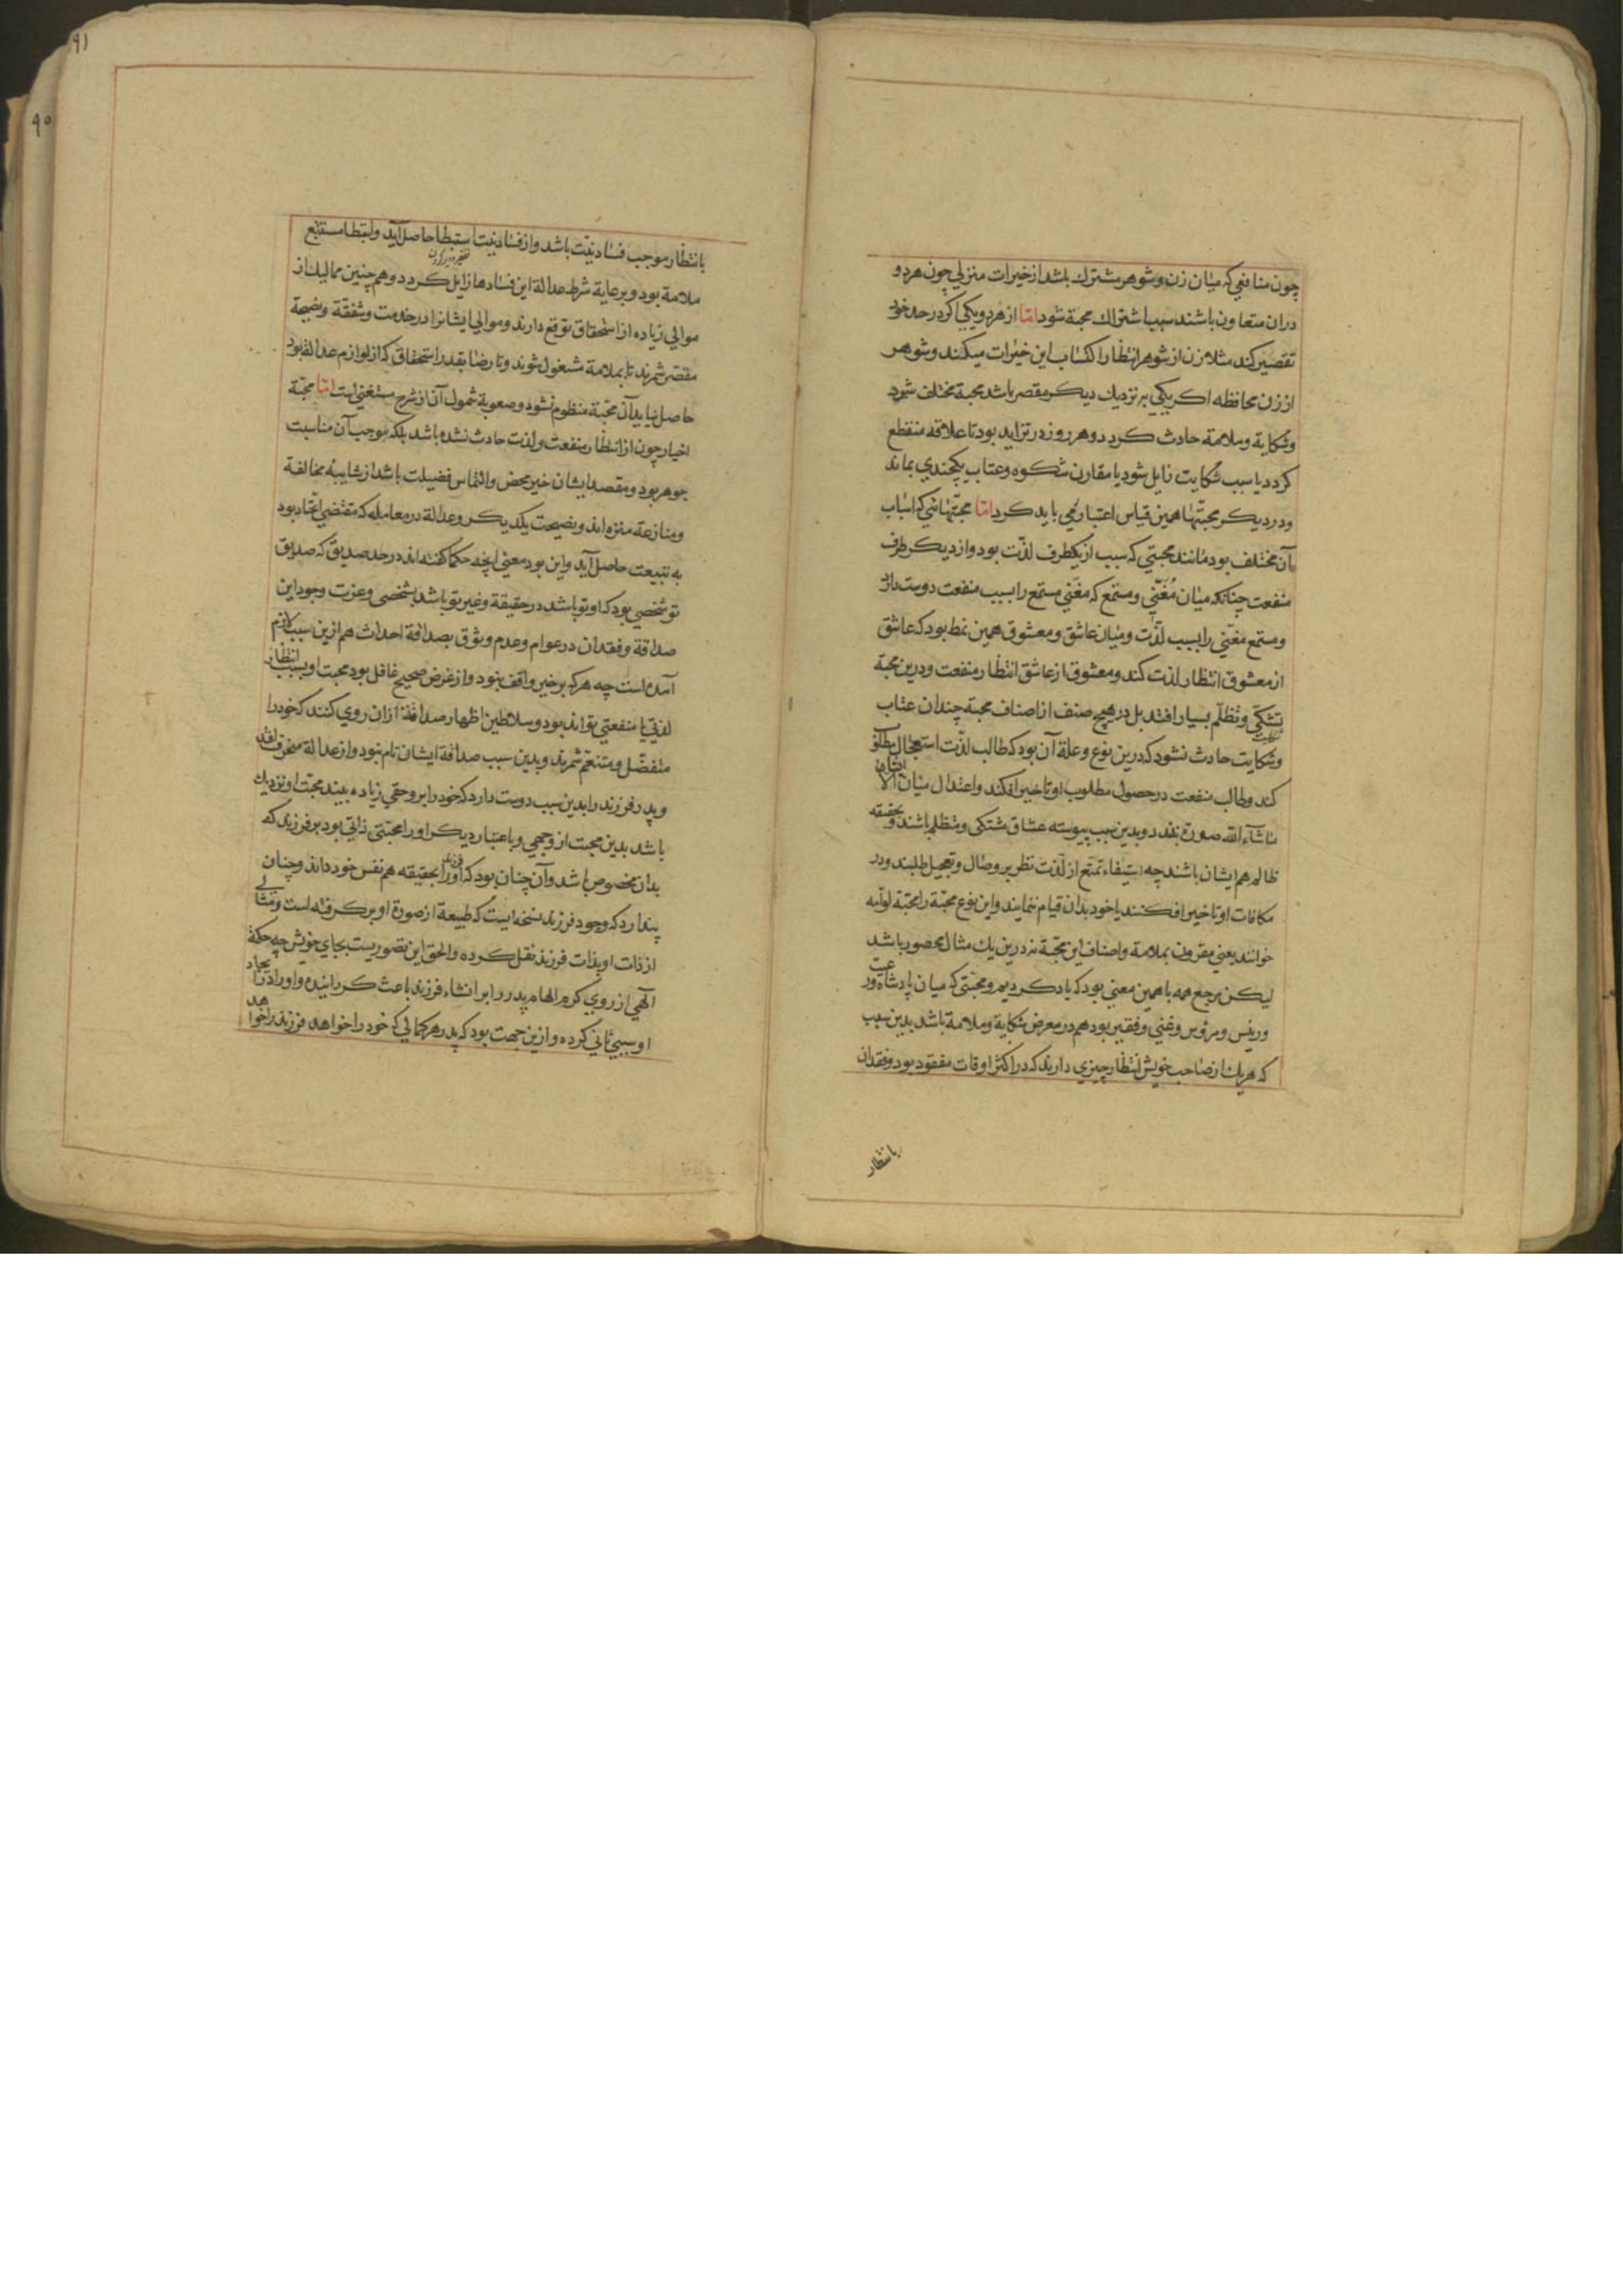 چون منافعی که میان زن و شوهر مشترك باشد از خیرات منزلی چون هر دو
دران متعاون باشند سبب اشتراك محبة شود امّا از هر دو یکی اکر در حد خود
تقصیر کند مثلا زن از شوهر انتظار اکتساب این خیرات میکند و شوهر
از زن محافظه اکر یکی بر نزدیك دیکر مقصر باشد محبة مختلف شود
و شکایة و ملامة حادث کردد و هر روز در تزاید بود تا علاقه منقطع
کردد یا سبب شکایت زایل شود یا مقارن شکوه و عتاب یکچندی بماند
و در دیکر محبتها همین قیاس اعتبار می باید کرد امّا محبتهائی که اسباب
آن مختلف بود مانند محبتی که سبب از یکطرف لذّت بود و از دیکر طرف
منفعت چنانکه میان مُغَنّی و مستمع که مغنی مستمع را بسبب منفعت دوست دارد
و مستمع مغنّی را بسبب لذّت و میان عاشق و معشوق همین نمط بود که عاشق
از معشوق انتظار لذت کند و معشوق از عاشق انتظار منفعت و درین محبة
تشکّی و تظلّم بسیار افتد بل در هیچ صنف از اصناف محبة چندان عتاب
و شکایت حادث نشود که درین نوع و علة آن بود که طالب لذّت استعجال مطلوب
کند و طالب منفعت در حصول مطلوب او تاخیر افکند و اعتدال میان ایشان الا
ماشآء الله صورة نبندد و بدین سبب پیوسته عشاق متشکی و متظلم باشند و بحقیقه
ظالم هم ایشان باشند چه استیفاء تمتّع از لذّت نظر بر وصال و تعجیل طلبند و در
مکافات او تاخیر افکنند یا خود بدان قیام ننمایند و این نوع محبّة را محبّة لوّامه
خوانند یعنی مقرون بملامة و اصناف این محبّة نه درین یك مثال محصور باشد
لیکن مرجع همه با همین معنی بود که یاد کردیم و محبّتی که میان پادشاه و رعیت
و رئیس و مرؤس و غنی و فقیر بود هم در معرض شکایة و ملامة باشد بدین سبب
که هر یك از صاحب خویش انتظار چیزی دارند که در اکثر اوقات مفقود بود و فقدان
با انتظار
با انتظار موجب فساد نیّت باشد و از فساد نیت استبطا حاصل آید و استبطا مستتبع
ملامة بود و برعایة شرط عدالة این فسادها زایل کردد و هم چنین ممالیك از
موالی زیاده از استحقاق توقع دارند و موالی ایشانرا در خدمت و شفقّة و نصیحة
مقصّر شمرند تا بملامة مشغول شوند و تا رضا بقدر استحقاق که از لوازم عدالة بود
حاصل نیاید آن محبّة منظوم نشود و صعوبة شمول آن از شرح مستغنی است امّا محبّة
اخیار چون از انتظار منفعت و لذت حادث نشده باشد بلکه موجب آن مناسبت
جوهر بود و مقصد ایشان خیر محض و التماس فضیلت باشد از شایبه مخالفة
و منازعة منزه اند و نصیحت یکدیکر و عدالة در معامله که مقتضی اتحاد بود
به تبیعت حاصل آید و این بود معنی انچه حکما کفته اند در حد صدیق که صدیق
تو شخصی بود که او تو باشد در حقیقة و غیر تو باشد بشخصی و عزت وجود این
صداقة و فقدان در عوام و عدم وثوق بصداقة احداث هم ازین سبب لازم
آمده است چه هر که بر خیر واقف نبود و از غرض صحیح غافل بود محبت او بسبب انتظار
لذتی یا منفعتی تواند بود و سلاطین اظهار صداقة ازان روی کنند که خود را
متفضّل و متنعّم شمرند و بدین سبب صداقة ایشان تام نبود و از عدالة منحرف افتد
و پدر فرزند را بدین سبب دوست دارد که خود را برو حقی زیاده بیند محبّت او نزدیك
باشد بدین محبت از وجهی و باعتبار دیکر او را محبّتی ذاتی بود بر فرزند که
بدان مخصوص باشد و آن چنان بود که او فرزند را بحقیقه هم نفس خود داند و چنان
پندارد که وجود فرزند نسخه ایست که طبیعة از صورة او بر کرفته است و مثالی
از ذات او بذات فرزند نقل کرده و الحق این تصوریست بجای خویش چه حکمة
آلهی از روی کرم الهام پدر را بر انشاء فرزند باعث کردانیده و او را در ایجاد
او سببی ثانی کرده و ازین جهت بود که پدر هر کمالی که خود را خواهد فرزند را خواهد
۹۱
۹۰